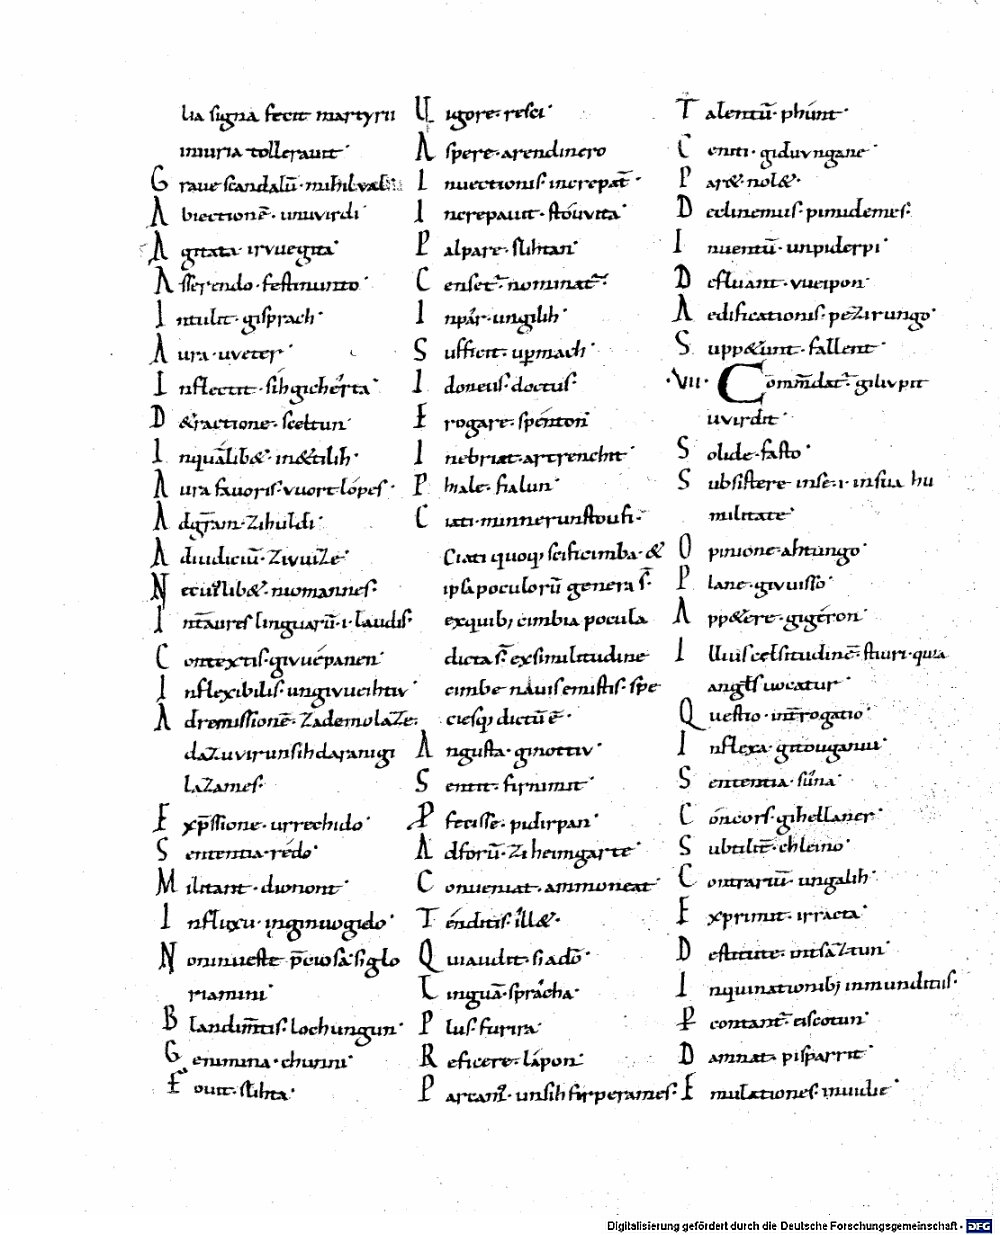 lia signa fecit martyrii
iniuria tollerauit·
Graue scandalū· mihil
Abiectionē· unuvirdi·
Agitata· irvuegita·
Asserendo· festinunto·
Intulit· gisprach·
Aura· uveter·
Inflectit· sih gicherta·
D&ractione· sceltun·
Inquālib&· in&tilih·
Aura fauoris· vuortlopes·
Adgr̄an· zihuldi·
Adiudiciū· zivuize·
Necuilib&· niomannes·
Int̄aures linguarū· i· laudis·
Contextis· givuepanen·
Inflexibilis· ungivueihtiv·
Adremissionē· zademolaze·
dazuvirunsihdaranigi
lazames·
Exp̄ssione· urrechido·
Sententia· redo·
Militant· dionont·
Influxu· inginuvogido·
Nominueste p̄ciosa· siglo
riamini·
Blandim̄tis· lochungun·
Gemmina· chunni·
Fouit· slihta·
Uigore· resci·
Aspere· arendinero
Inuectionis· increpat̄·
Increpauit· stouvita·
Palpare· slihtan·
Censet̄· nominat̄·
Inpar· ungilih·
Sufficit· upmach·
Idoneus· doctus·
Erogare· spenton·
Inebriat· artrenchit·
Phiale· fialun·
Ciati· minnerunstoufi·
Ciati quoq; scificimba· &
ipsa poculorū genera s̄·
exquib; cimbia pocula
dicta s̄· exsimilitudine
cimbe nauis emistis· spe
ciesq; dictū ē·
Angusta· ginottiv·
Sentit· firnimit·
Pfecisse· pidirpan·
Adforū· ziheimgarte·
Conueniat· ammoneat·
Tenditis· ill&·
Quiaudit· siadō·
Linguā· spracha·
Plus· furira·
Reficere· lapon·
Parcam̄· unsih firperames·
Talentū· phunt·
Centi· giduvngane·
Par& nol&·
Declinemus· pimidemes·
Inuentū· unpiderpi·
Defluant· vueipon·
Aedificationis· pezirungo·
Supp&unt· fallent·
·VII· Com̄mdat̄· gilivpit
uvirdit·
Solide· fasto·
Subsistere· inse· i· insua hu
militate·
Opinione· ahtungo·
Plane· givuisso·
App&ere· gigeron·
Illius celsitudinē· stiuri· quia
angl̄s uocatur·
Questio· int̄rogatio·
Inflexa· gipougannu·
Sententia· suna·
Concors· gihellaner·
Subtilit̄· chleino·
Contrariū· ungalih·
Exprimit· irracta·
Destitute· intsaztun·
Inquinationib; inmunditiis·
Pcontant̄· eiscotun·
Damnat· pisparrit·
Emulationes· inuidie·
Digitalisierung gefördert durch die Deutsche Forschungsgemeinschaft - DFG